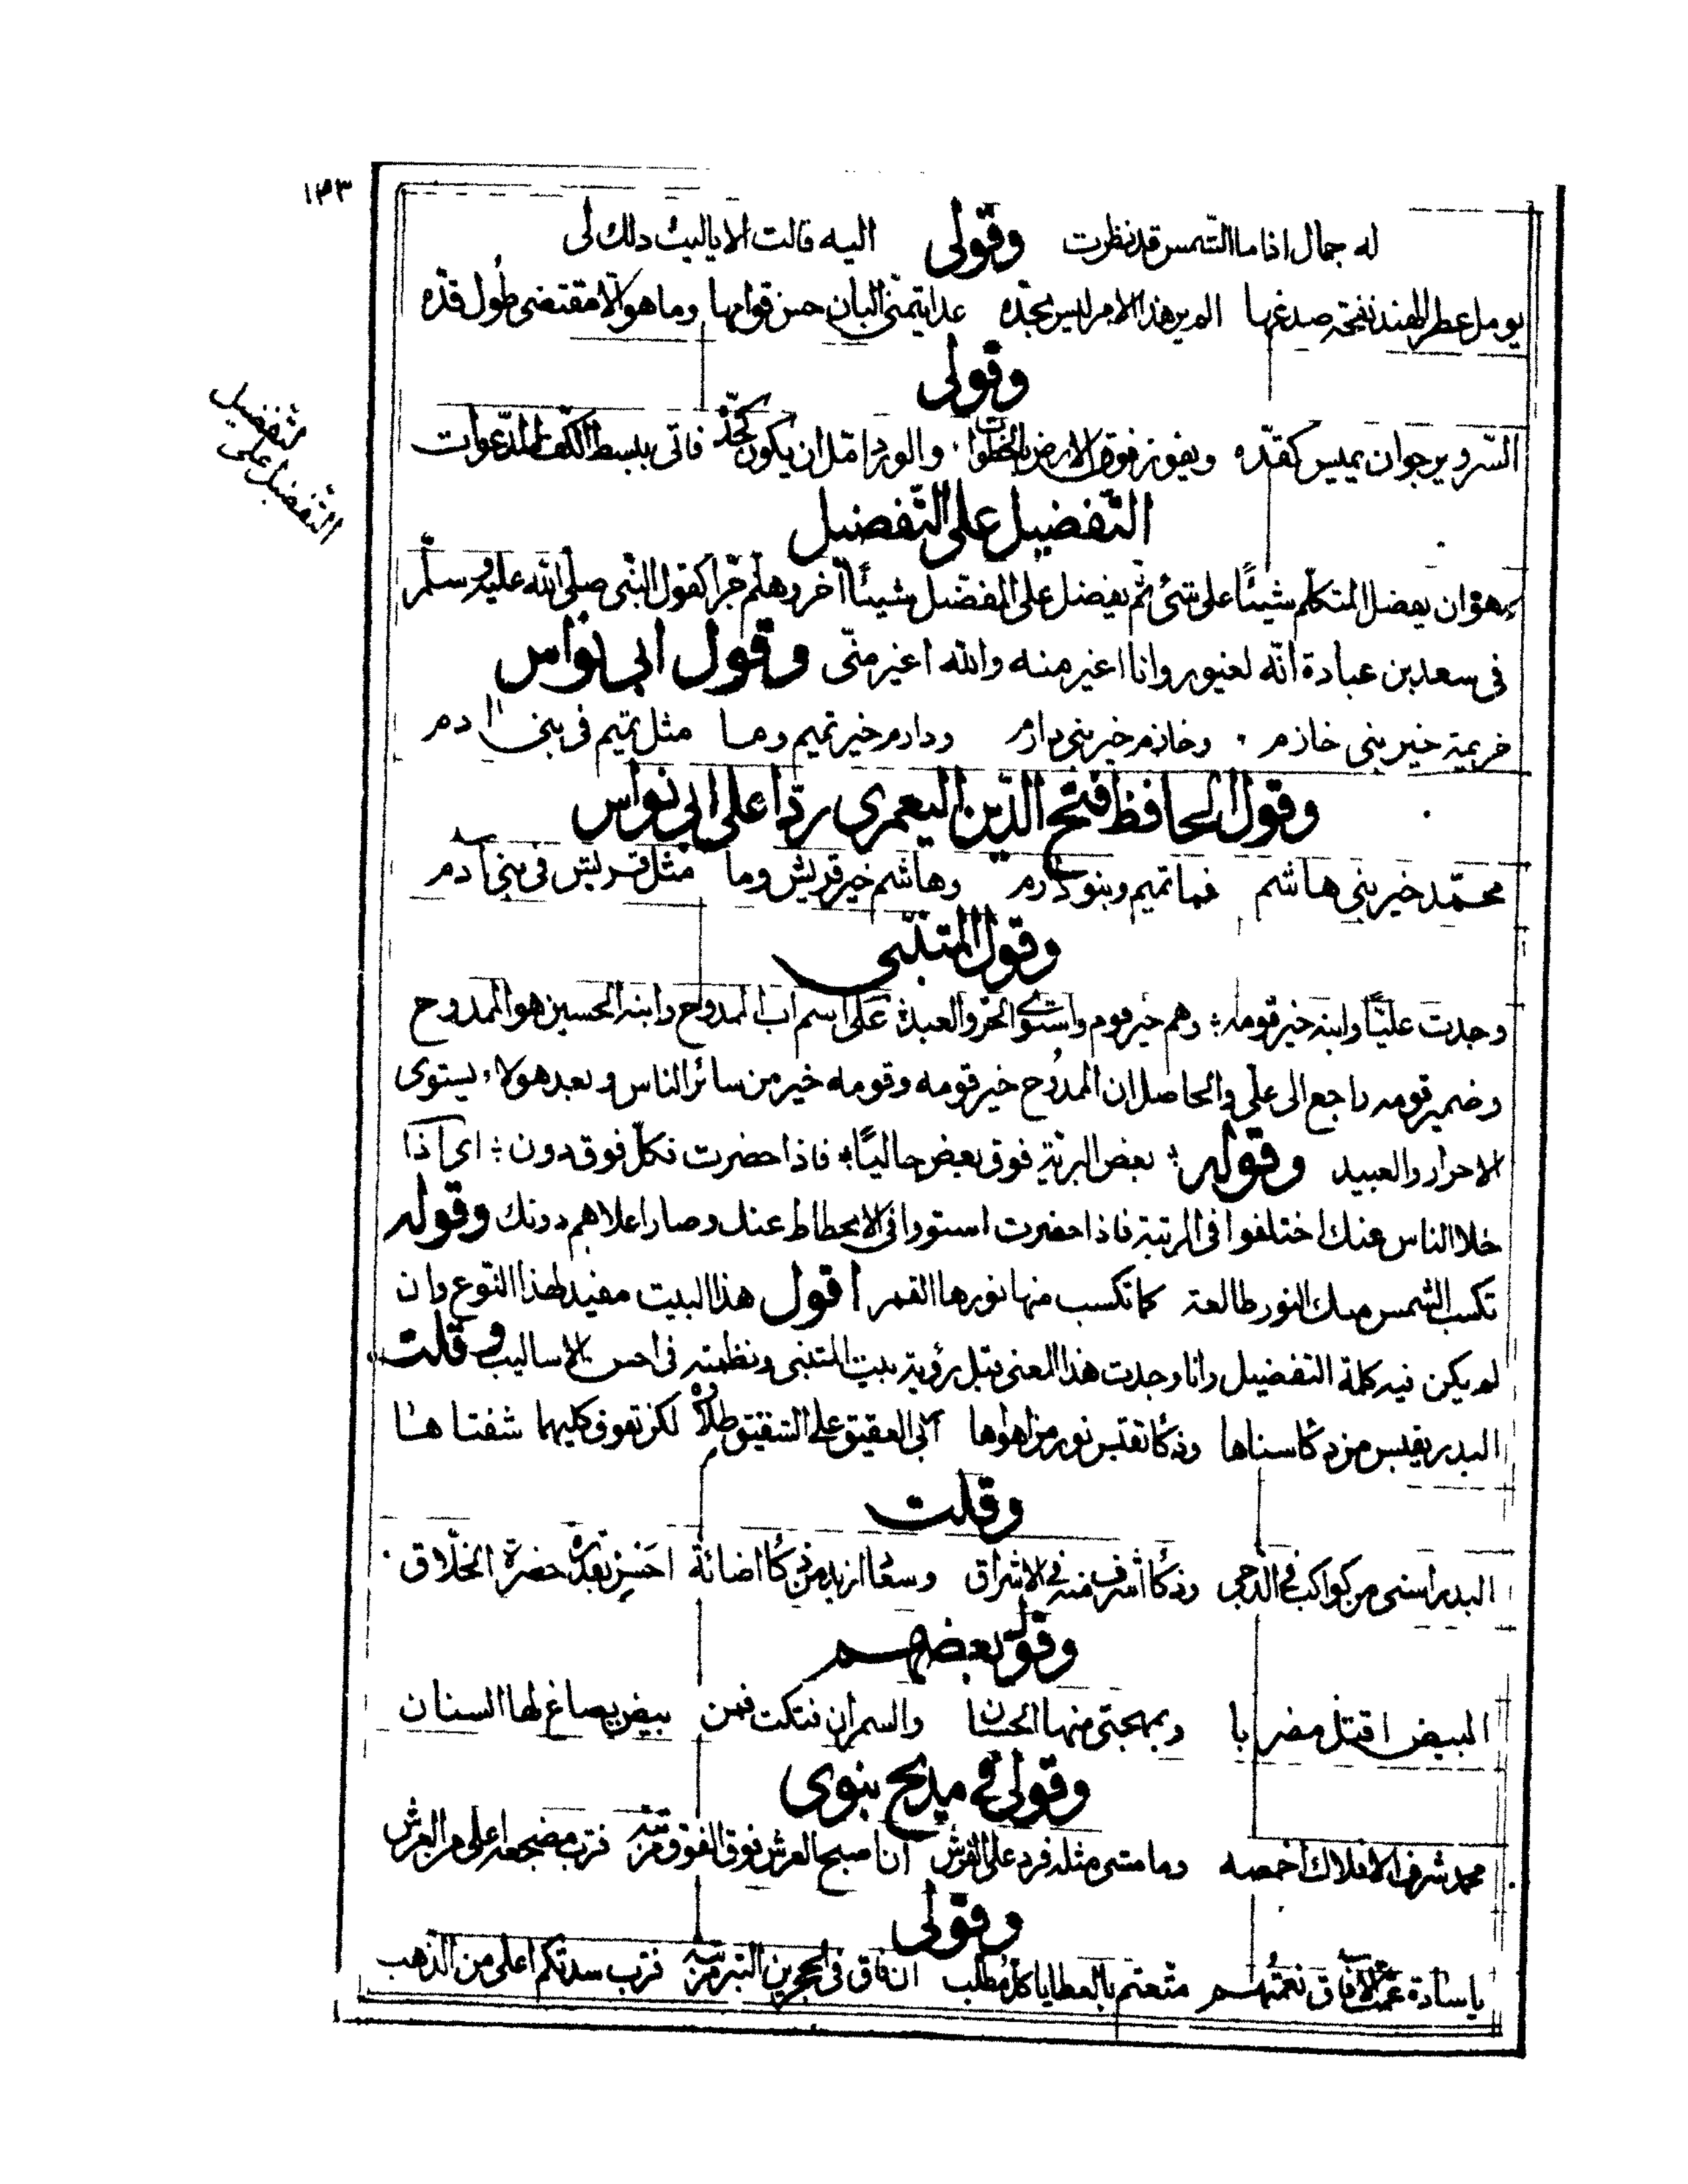 ١٤٣
له جمال اذا ما الشمس قد نظرت اليه قالت الا يا ليت ذلك لى
وقولى
يومل عطر الهند نفحة صدغها الم ير هذا الامر ليس بجده غدا يتمنى البان حسن قوامها وما هو الا مقتضى طول قده
وقولى
السرو يرجو ان يميس كقده ويفوز فوق الارض بالخطوات والورد امّل ان يكون كخده فاتى ببسط الكف للدعوات
التفضيل على التفضيل
التّفضيل على التّفضيل
هو ان يفضل المتكلّم شيئًا على شئ ثم يفضل على المفضّل شيئًا آخر وهلم جرّا كقول النبى صلى الله عليه وسلم
فى سعد بن عبادة انّه لغيور وانا اغير منه والله اغير منّى وقول ابى نواس
خزيمة خير بنى خازم وخازم خير بنى دارم ودارم خير تميم وما مثل تميم فى بنى ادم
وقول الحافظ فتح الدّين اليعمرى ردّا على ابى نواس
محمّد خير بنى هاشم فما تميم وبنو دارم وهاشم خير قريش وما مثل قريش فى بنى ادم
وقول المتنبّى
وجدت عليًّا وابنه خير قومه وهم خير قوم واستوى الحر والعبد على اسم اب الممدوح وابنه الحسين هو الممدوح
وضمير قومه راجع الى على والحاصل ان الممدوح خير قومه وقومه خير من سائر الناس وبعد هولاء يستوى
الاحرار والعبيد وقوله بعض البرية فوق بعض خاليًا فاذا حضرت فكلّ فوق دون اى اذا
خلا الناس عنك اختلفوا فى المرتبة فاذا حضرت استووا فى الانحطاط عنك وصار اعلاهم دونك وقوله
تكسب الشمس منك النور طالعة كما تكسب منها نورها القمر اقول هذا البيت مفيد لهذا النوع وان
لم يكن فيه كلمة التفضيل وانا وجدت هذا المعنى قبل رؤية بيت المتنبى ونظمته فى احسن الاساليب وقلت
البدر يقبس من ذكا سناها وذكا تقتبس نور من اهواها العقيق على الشقيق طلاوة لكن تفوق كليهما شفتاها
وقلت
البدر اسنى من كواكب فى الدجى وذكا اشرف منه فى الاشراق وسعا ازيد من ذكا اضائة احسن بقدرة حضرة الخلّاق
وقول بعضهم
البيض اقتل مضربا وبمهجتى منها الحسان والسمر ان فتكت فمن بيض يصاغ لها السنان
وقولى فى مديح نبوى
محمد شرف الافلاك اخمصه وما مشى مثله فرد على الفرش ان اصبح العرش فوق الفوق مرتبة فترب مضجعه اعلى من العرش
وقولى
يا سادة عمت الافاق نعمتهم متعتم بالعطايا كل مطلب ان فاق فى الحجرين التبر مرتبة فترب سدتكم اعلى من الذهب